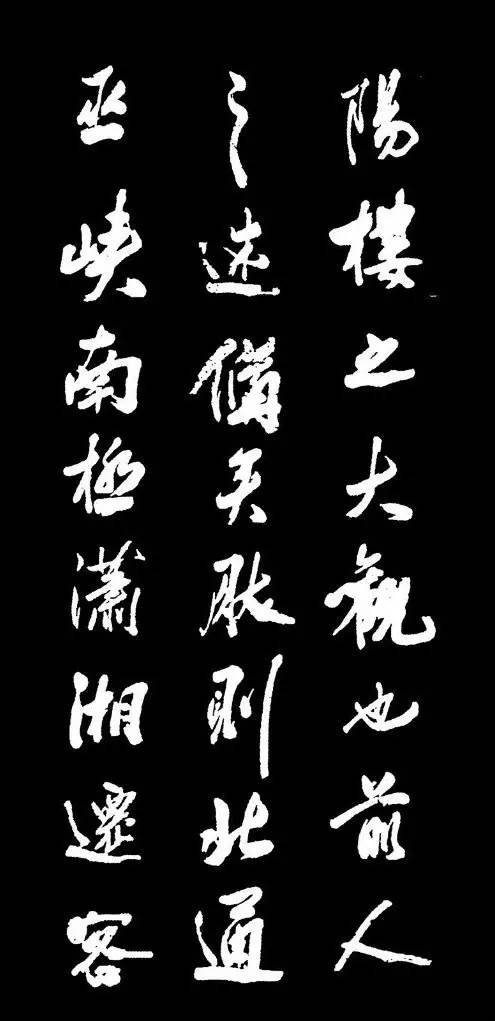 陽樓之大觀也前人
之述備矣然則北通
巫峽南極瀟湘遷客